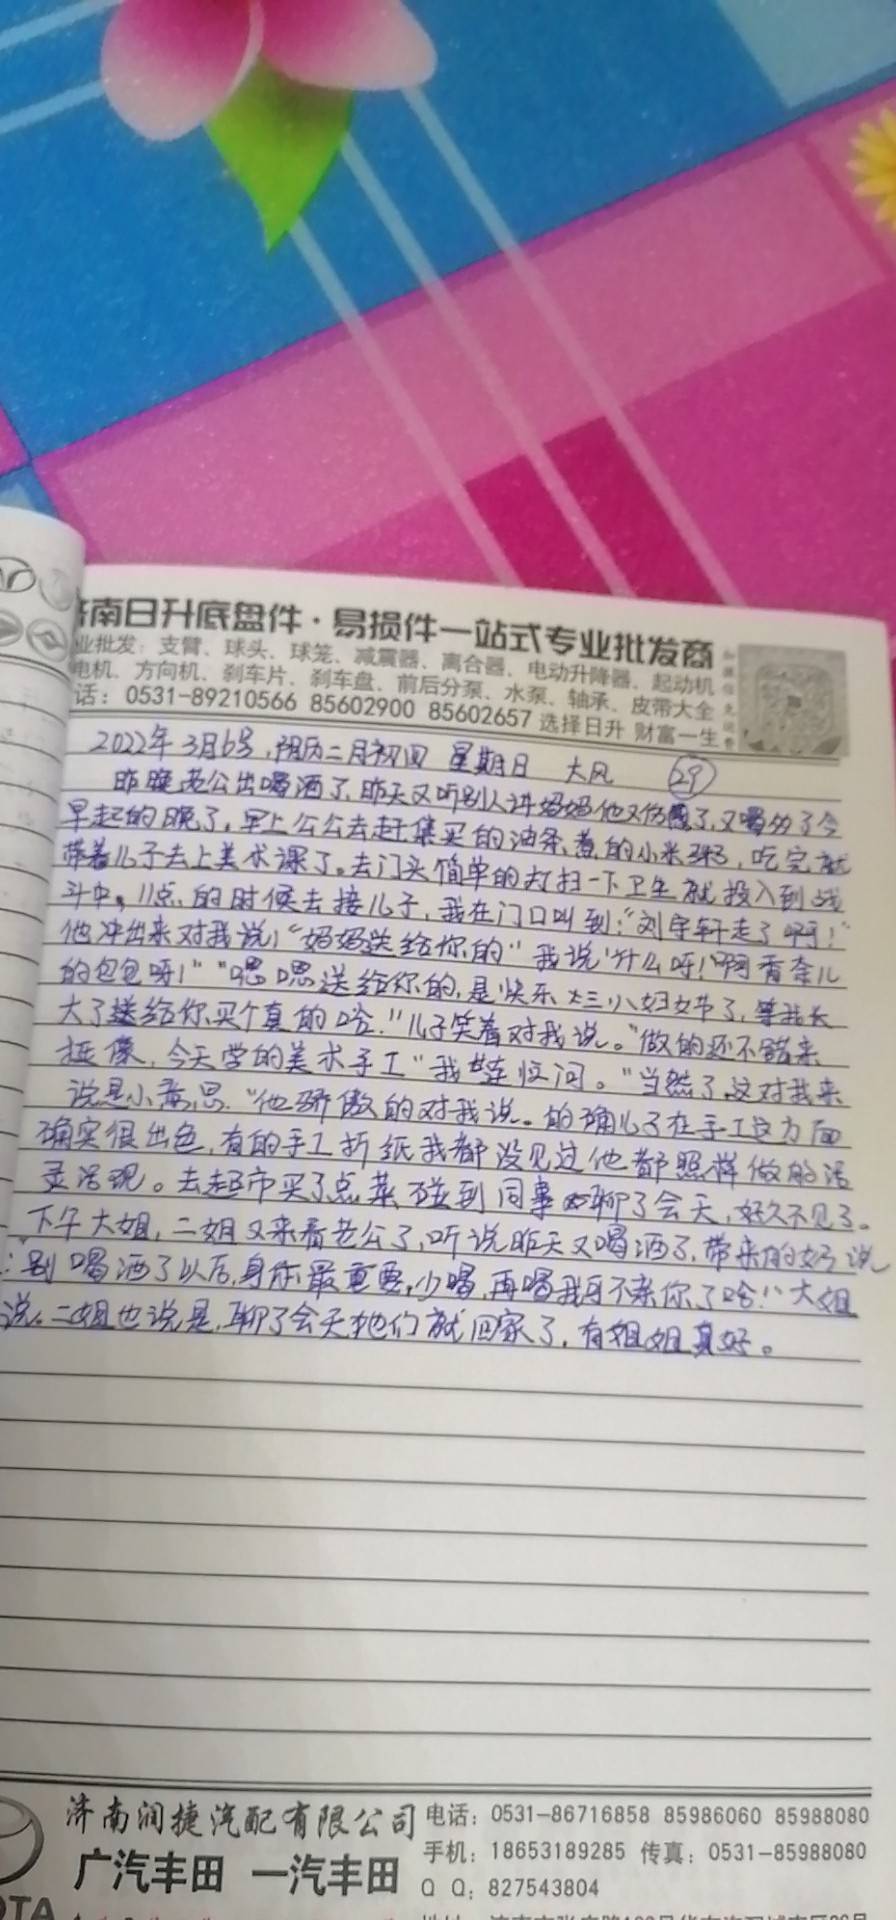 济南日升底盘件·易损件一站式专业批发商
业批发：支臂、球头、球笼、减震器、离合器、电动升降器、起动机
电机、方向机、刹车片、刹车盘、前后分泵、水泵、轴承、皮带大全
话：0531-89210566 85602900 85602657 选择日升 财富一生
2022年3月6号，阴历二月初四 星期日 大风 29
昨晚老公出喝酒了，昨天又听别人讲妈妈他又伤感了，又喝多了今
早起的晚了。早上公公去赶集买的油条，煮的小米粥，吃完就
带着儿子去上美术课了。去门头简单的打扫一下卫生就投入到战
斗中。11点的时候去接儿子，我在门口叫到：“刘宇轩走了啊！”
他冲出来对我说！“妈妈送给你的”我说“什么呀！啊香奈儿
的包包呀！”“嗯嗯送给你的，是快乐 三八妇女节了，等我长
大了送给你买个真的哈。”儿子笑着对我说。“做的还不错来
挺像，今天学的美术手工”我 连忙问。“当然了这对我来
说是小意思”他骄傲的对我说。的确儿子在手工这方面
确实很出色，有的手工折纸我都没见过他都照样做的活
灵活现。去超市买了点菜碰到同事 聊了会天，好久不见了。
下午大姐，二姐又来看老公了，听说昨天又喝酒了，带来的好 说
：别喝酒了以后，身体最重要，少喝，再喝我可不来你了哈！”大姐
说。二姐也说是，聊了会天她们就回家了，有姐姐真好。
济南润捷汽配有限公司 电话：0531-86716858 85986060 85988080
手机：18653189285 传真：0531-85988080
广汽丰田 一汽丰田
Q Q：827543804
OTA